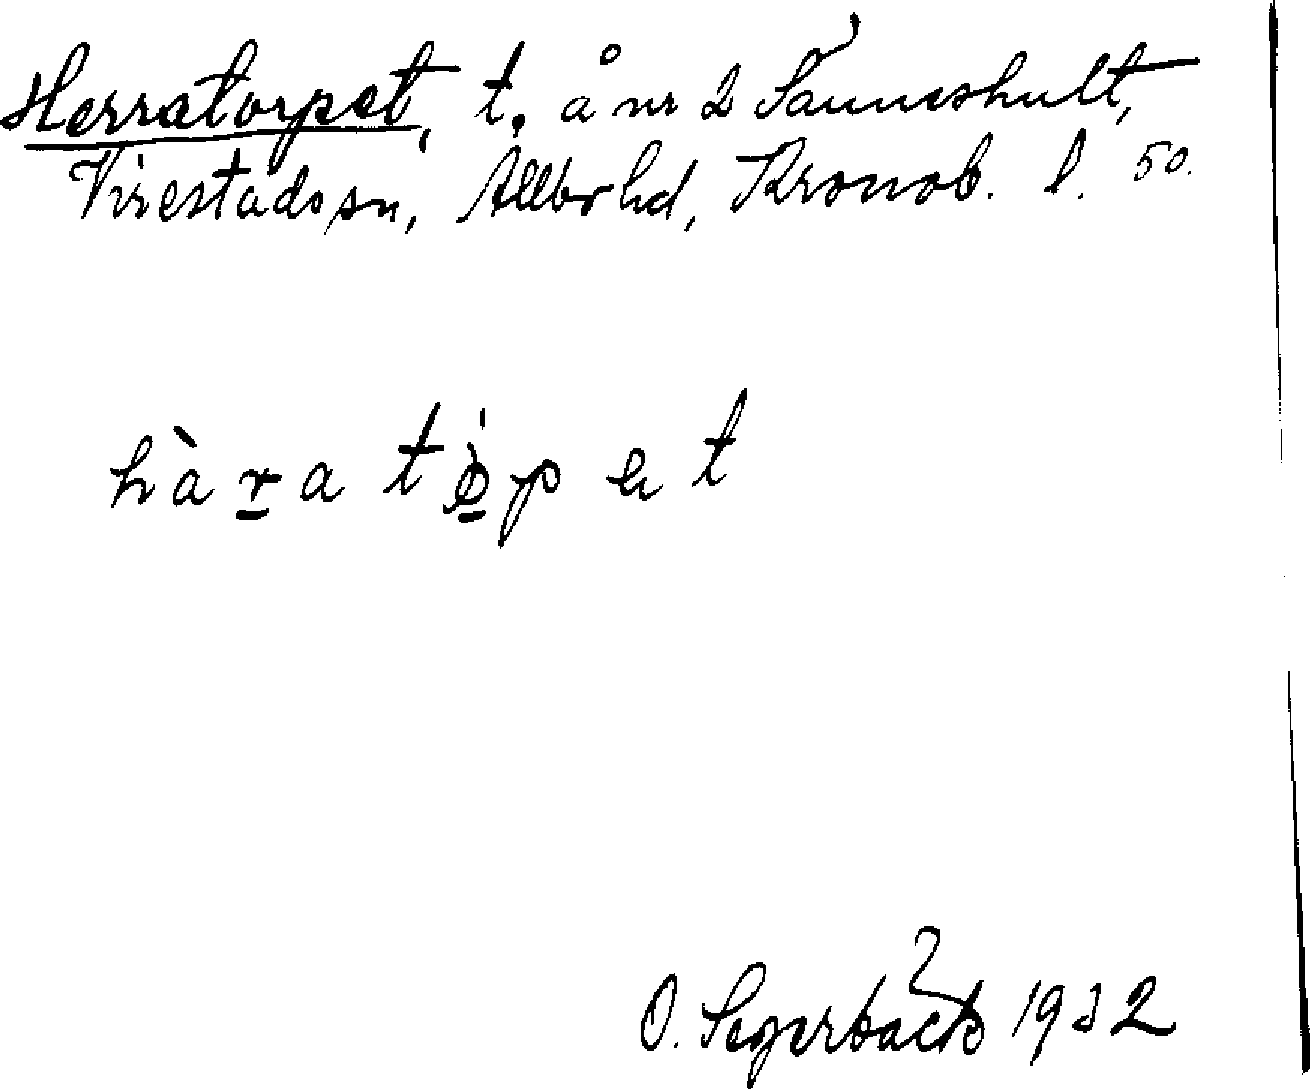 Herratorpet, t. å nr 2 Sånneshult,
Virestads sn, Allbo hd, Kronob. l. 50.
hàr̲atø̲̀pet
O. Segerbäck 1932